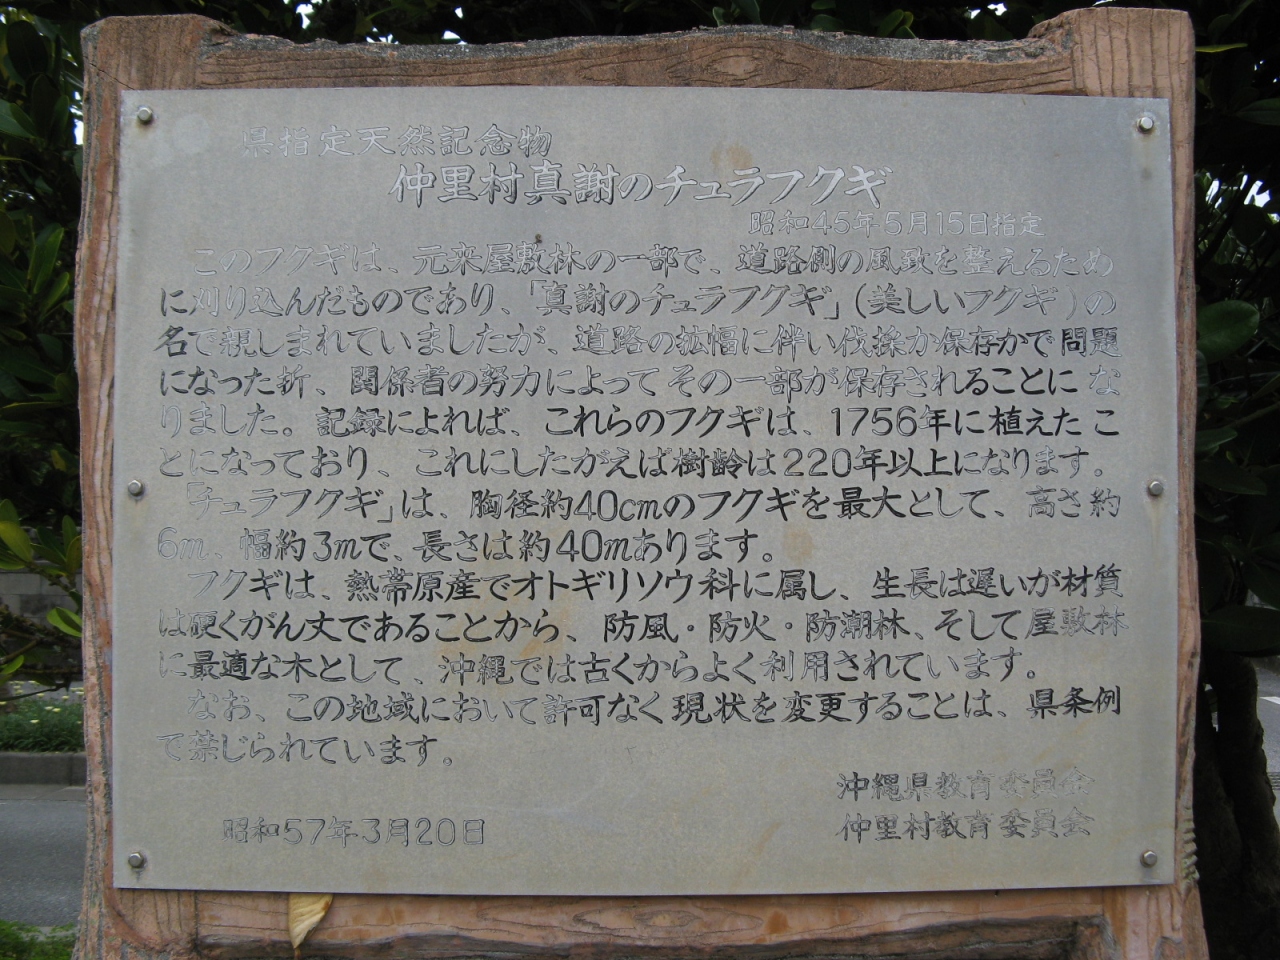 県指定天然記念物
仲里村真謝のチュラフクギ
昭和45年5月15日指定
このフクギは、元来屋敷林の一部で、道路側の風致を整えるため
に刈り込んだものであり、「真謝のチュラフクギ」(美しいフクギ)の
名で親しまれていましたが、道路の拡幅に伴い伐採か保存かで問題
になった折、関係者の努力によってその一部が保存されることにな
りました。記録によれば、これらのフクギは、1756年に植えたこ
とになっており、これにしたがえば樹齢は220年以上になります。
「チュラフクギ」は、胸径約40cmのフクギを最大として、高さ約
6m、幅約3mで、長さは約40mあります。
フクギは、熱帯原産でオトギリソウ科に属し、生長は遅いが材質
は硬くがん丈であることから、防風・防火・防潮林、そして屋敷林
に最適な木として、沖縄では古くからよく利用されています。
なお、この地域において許可なく現状を変更することは、県条例
で禁じられています。
沖縄県教育委員会
仲里村教育委員会
昭和57年3月20日